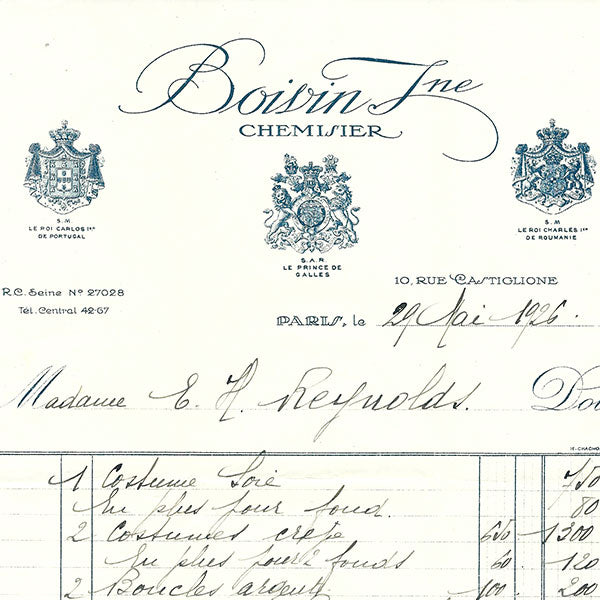 Boivin Jne
CHEMISIER
S.M.
LE ROI CARLOS Ier
DE PORTUGAL
S.A.R.
LE PRINCE DE
GALLES
S.M.
LE ROI CHARLES Ier
DE ROUMANIE
R.C. Seine Nº 27028
Tél. Central 42-67
10, RUE CASTIGLIONE
PARIS, le 29 Mai 1926.
Madame E. H. Reynolds. Doi
1 Costume Soie 750
En plus pour fond. 80
2 Costumes crepe 650 1300
En plus pour 2 fonds 60 120
2 Boucles argent 100 200